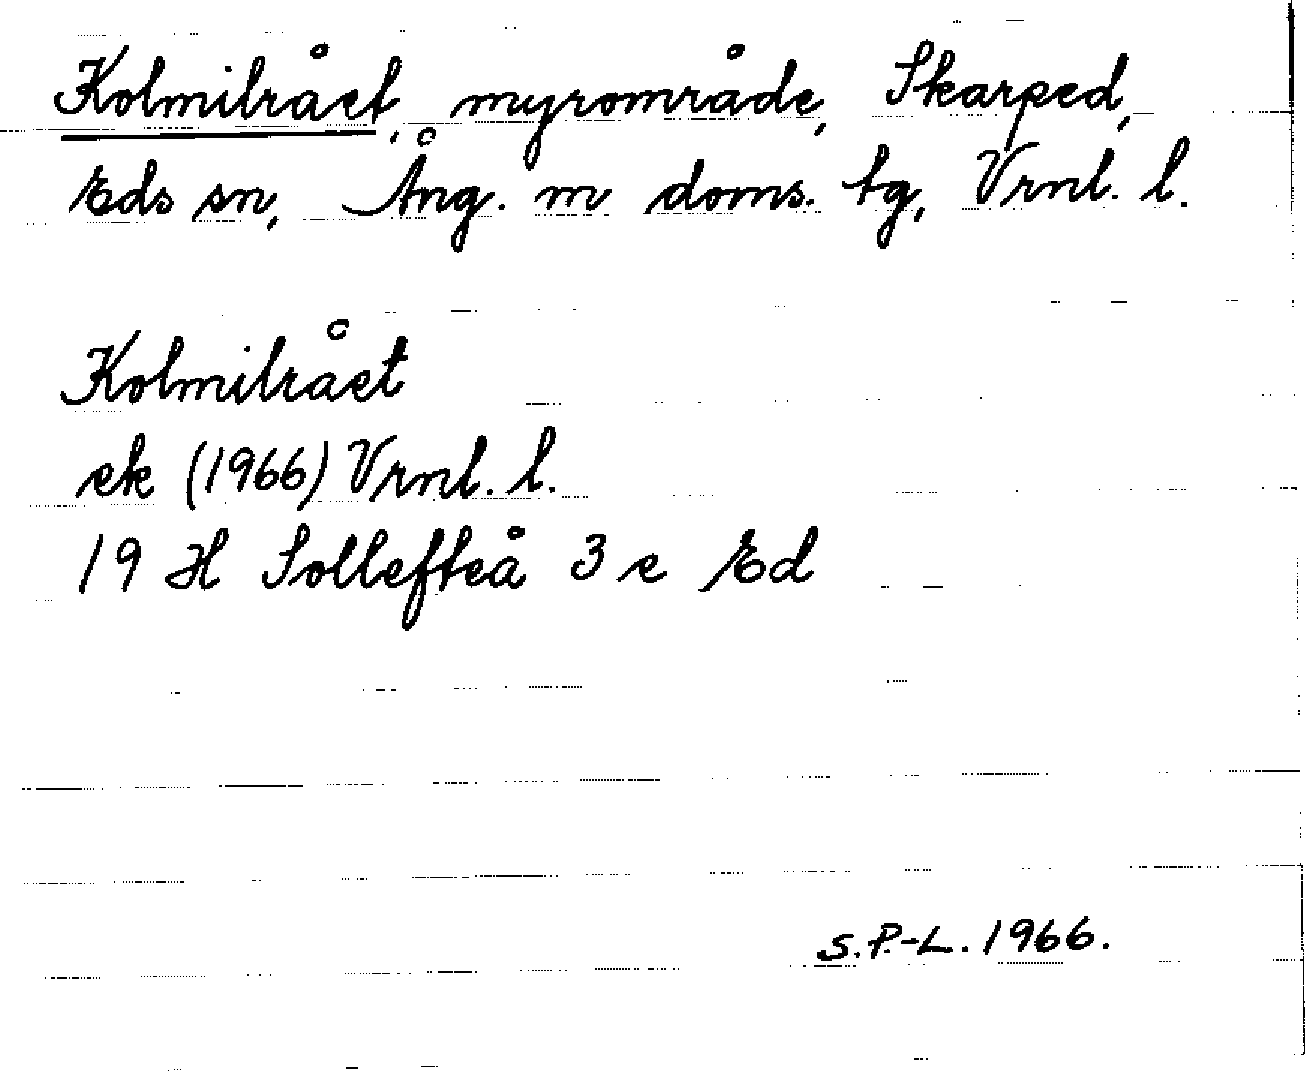 Kolmilrået, myrområde, Skarped,
Eds sn, Ång. m doms. tg, Vrnl. l.
Kolmilrået
ek (1966) Vrnl. l.
19 H Sollefteå 3 e Ed
S.P-L. 1966.